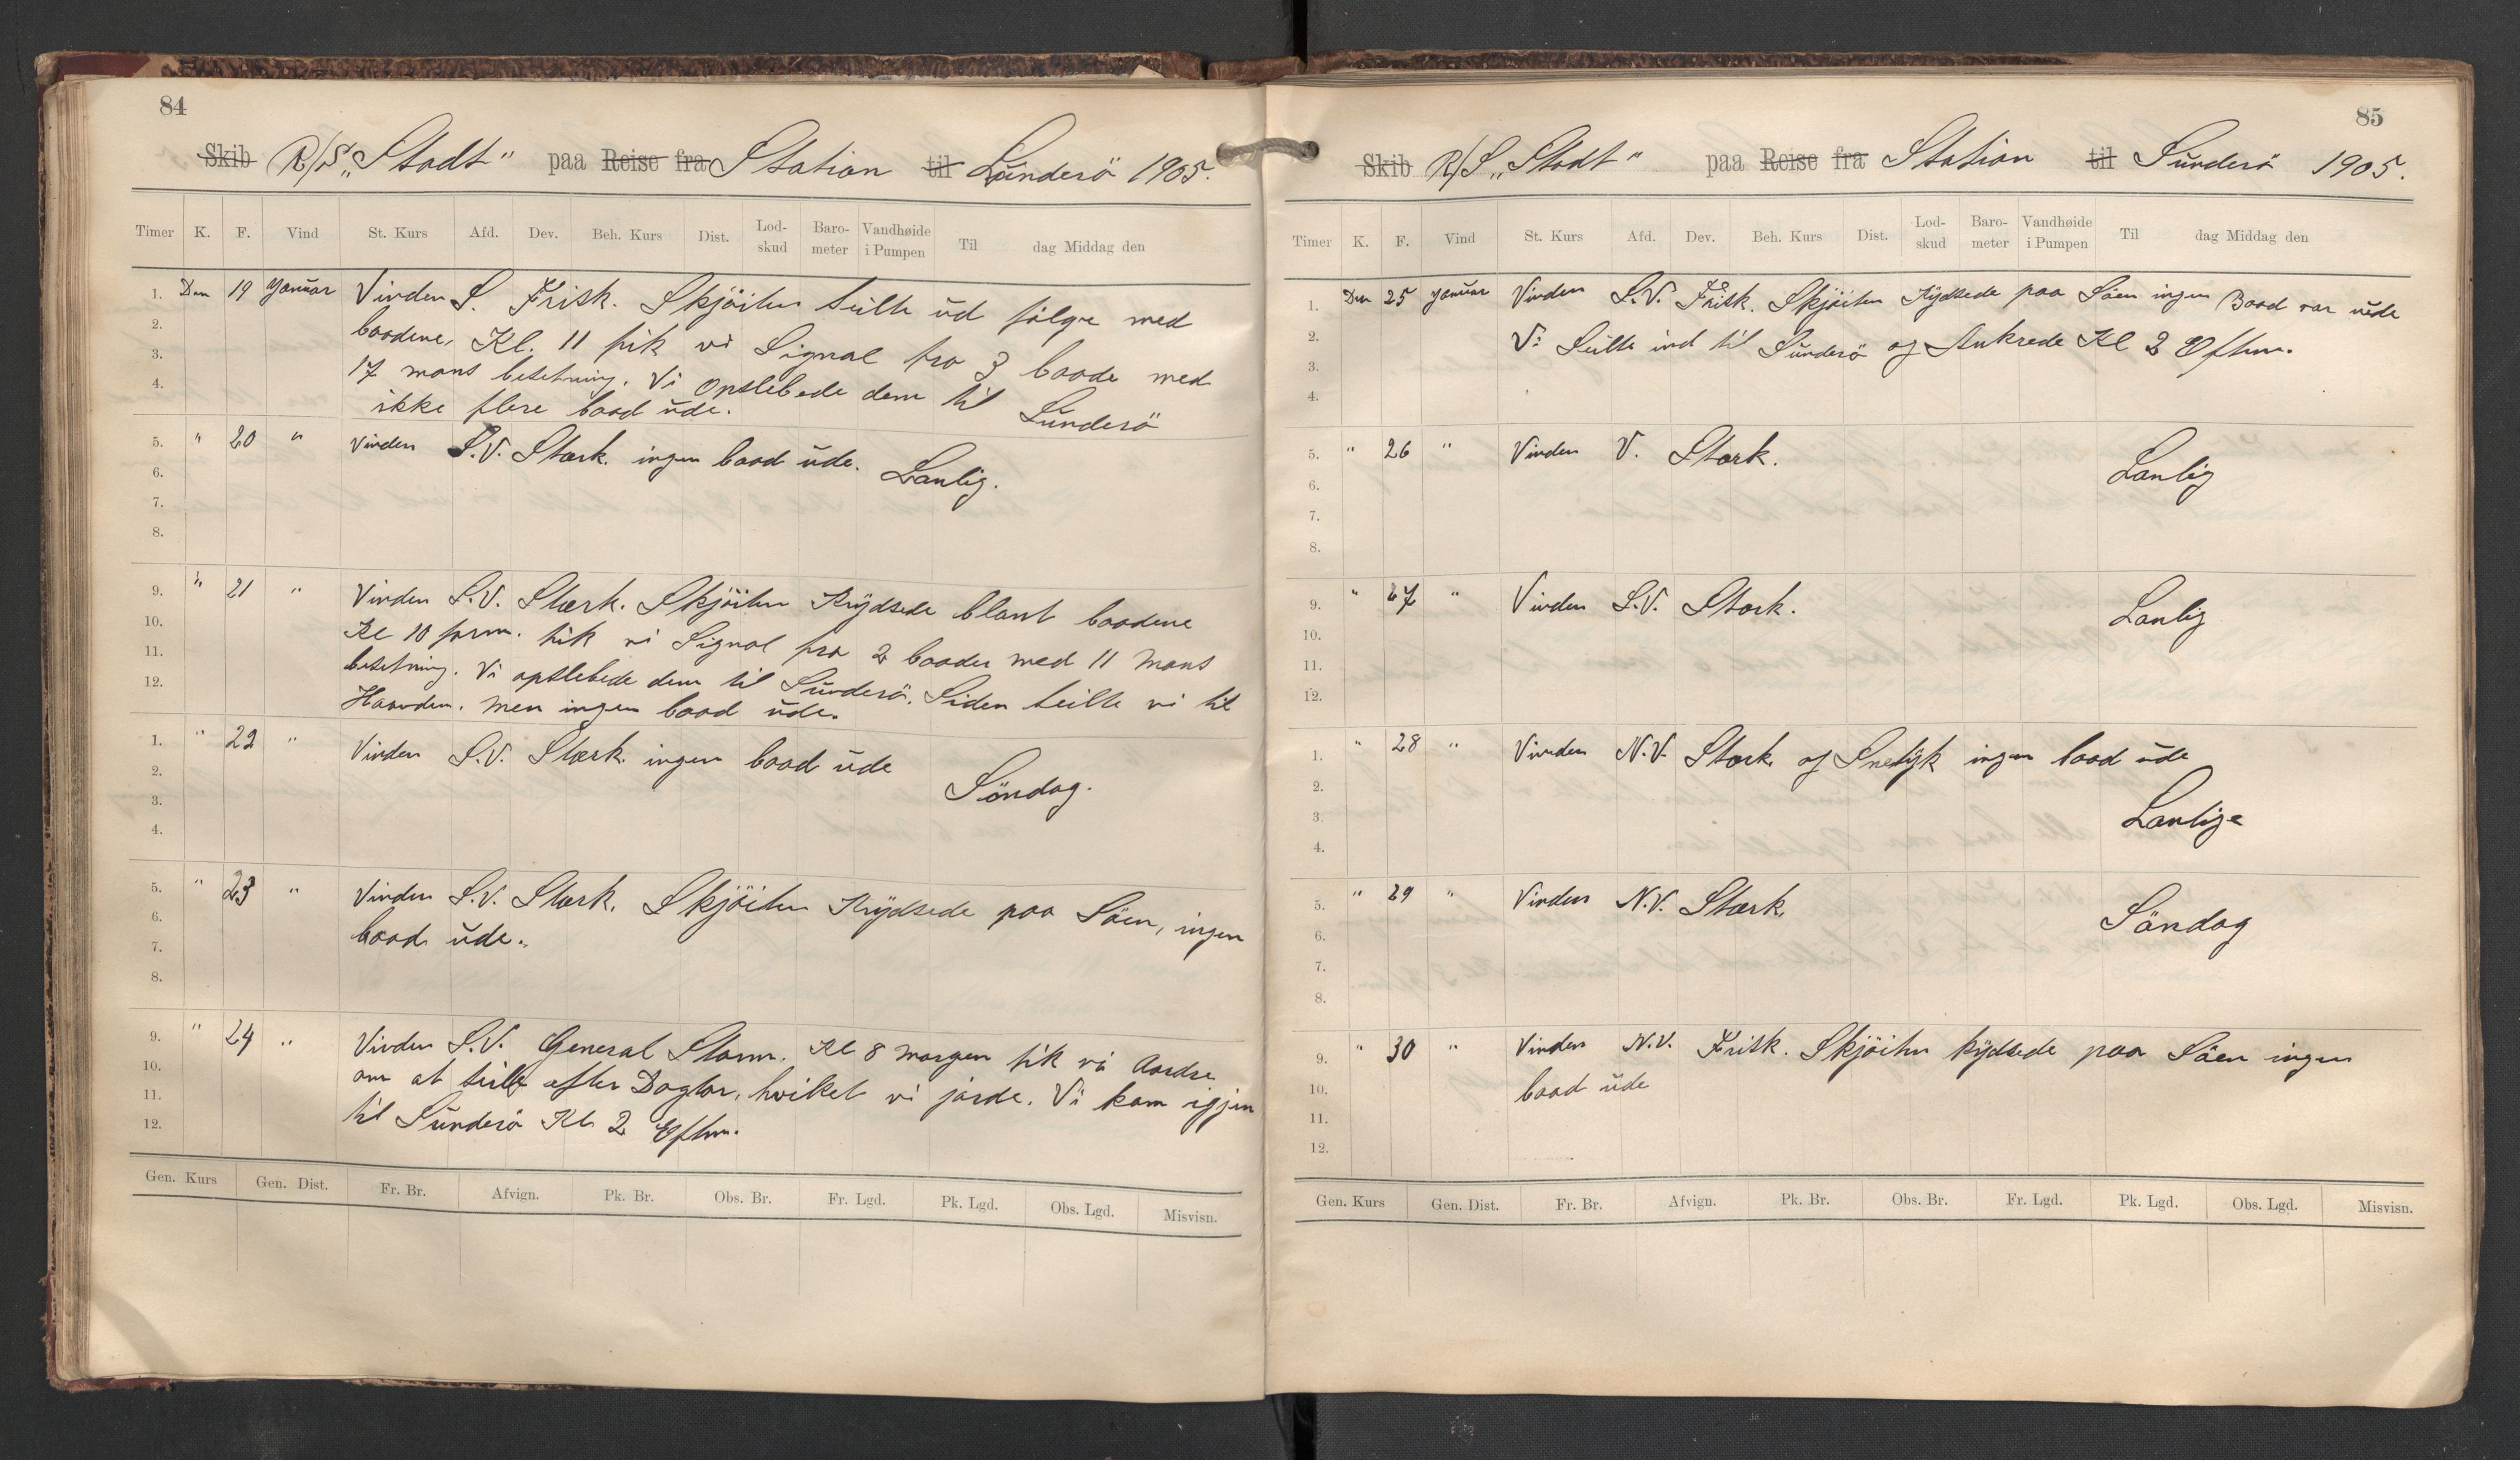 84
Skib R/S „Stadt" paa Reise fra Station til Sunderö 1905.
Timer K. F. Vind St. Kurs Afd. Dev. Beh. Kurs Dist. Lod-skud Baro-meter Vandhøide i Pumpen Til dag Middag den
1. Den 19 Januar Vinden S. Frisk. Skjöiten seilte ud fölge med
2. baadene, Kl. 11 fik vi Signal fra 3 baade med
3. 17 mans besetning. Vi opslebede dem til Sunderö
4. ikke flere baad ude.
5. " 20 " Vinden S.V. Stærk. ingen baad ude. Lanlig.
6.
7.
8.
9. " 21 " Vinden S.V. Stærk. Skjöiten Krydsede blant baadene
10. Kl 10 form. fik vi Signal fra 2 baader med 11 mans
11. besetning. Vi opslebede dem til Sunderö. Siden seilte vi til
12. Haavden. men ingen baad ude.
1. " 22 " Vinden S.V. Stærk. ingen baad ude
2. Söndag.
3.
4.
5. " 23 " Vinden S.V. Stærk. Skjöiten Krydsede paa Söen, ingen
6. baad ude.
7.
8.
9. " 24 " Vinden S.V. General Storm. Kl 8 morgen fik vi Aardre
10. om at seile efter Dogtor, hvilket vi jorde. Vi kom igjen
11. til Sunderö Kl. 2 Eftm.
12.
Gen. Kurs Gen. Dist. Fr. Br. Afvign. Pk. Br. Obs. Br. Fr. Lgd. Pk. Lgd. Obs. Lgd. Misvisn.
85
Skib R/S „Stadt" paa Reise fra Station til Sunderö 1905.
Timer K. F. Vind St. Kurs Afd. Dev. Beh. Kurs Dist. Lod-skud Baro-meter Vandhøide i Pumpen Til dag Middag den
1. Den 25 Januar Vinden S.V. Frisk. Skjöiten Kydsede paa Söen ingen Baad var uede
2. Vi Seilte ind til Sunderö og Ankrede Kl 2 Eftm.
3.
4.
5. " 26 " Vinden V. Stærk. Lanlig
6.
7.
8.
9. " 27 " Vinden S.V. Stærk. Lanlig
10.
11.
12.
1. " 28 " Vinden N.V. Stærk og Snetyk ingen baad ude
2.
3. Lanlige
4.
5. " 29 " Vinden N.V. Stærk. Söndag
6.
7.
8.
9. " 30 " Vinden N.V. Frisk. Skjöiten kydsede paa Söen ingen
10. baad ude
11.
12.
Gen. Kurs Gen. Dist. Fr. Br. Afvign. Pk. Br. Obs. Br. Fr. Lgd. Pk. Lgd. Obs. Lgd. Misvisn.